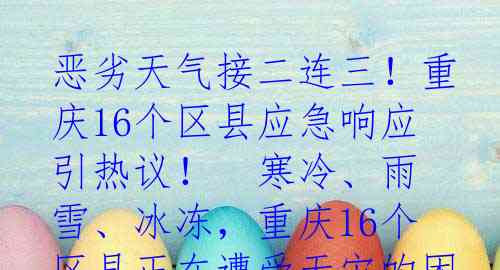 恶劣天气接二连三！重
庆16个区县应急响应
引热议！　寒冷、雨
雪、冰冻，重庆16个
区县正在遭受天灾的困